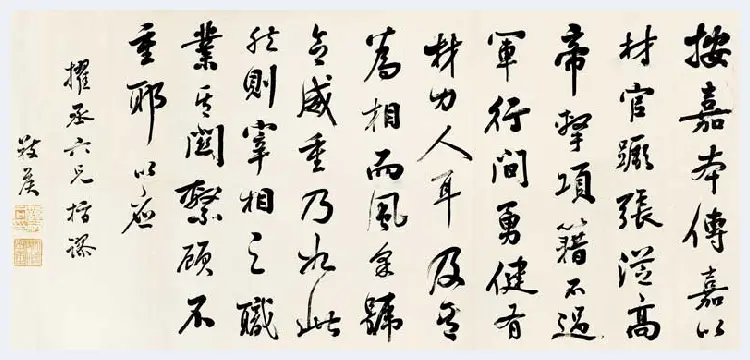 按嘉本傳嘉以
材官蹶張從高
帝擊項籍不過
軍行間勇健有
材力人耳及其
為相而風采號
令威重乃如此
然則宰相之職
業其關繫顧不
重耶以應
擢丞六兄指謬